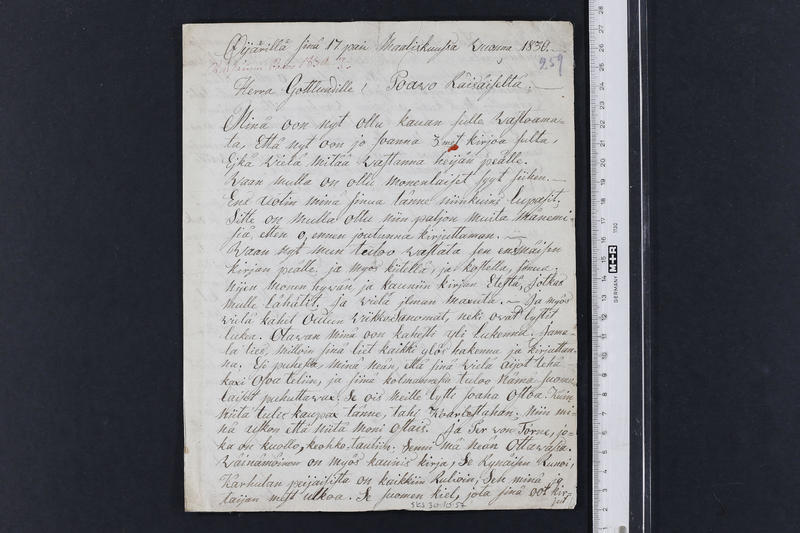 Öijärillä sinä 17 päiv Maaliskuussa Vuonna 1830.
259
Herra Gottlundille! Poavo Räisäiseltä.
Minä oon nyt ollu kauan sulle Wastoama-
ta, Että nyt oon jo soanna 3 kirjoa sulta,
Ejkä vielä mitää wastanna heijän peälle.
Waan mulla on ollu monenlaiset syyt siihen.
Enä Uotin minä sinua tänne niinkuinä lupasit.
Sitte on mulla ollu niin paljon muita Mänemi-
siä, etten o, ennen joutunna kirjuttaman.
Waan nyt mun tuloo wastata sen ensmäisen
kirjan peälle, ja myös kiitellä, ja kostella, sinua
nijen monen hyvän ja kauniin kirjan Eestä, jotkas
mulle lähätit. Ja vielä ilman maxuta. Ja myös
vielä kahet Oulun Viikko Sanomat, neki ovat lystit
lukea. Otawan minä oon kahesti yli lukenna. Juma-
la tiesi, milloin sinä liet kaikki ylös hakenna ja kirjuttan-
na. Esi puhesta, minä neän, että sinä vielä aijot tehä
kaxi Osoa teliin, ja siinä kolmannesa tuloo Nämä Suoma-
laiset puhuttavax. Se ois meille lysti soaha Ottoa. Kuin
niitä tulec kaupax tänne, tahi Kvarlostahan, niin mi-
nä uskon että niitä moni Otais. Ja Per von Torne, jo-
ka on kuollo, keohko tautiin, senni mä neän Ottawasta.
Väinämöinen on myös kaunis kirja, Se Kynäisen Runoi,
Karhulan peijaisista on kaikkiin kuluin, sen minä jo
taijan mest ulkoa. Se suomen kiel, jota sinä oot kir-
jut
SKS 30:10:57
GERMANY M+R